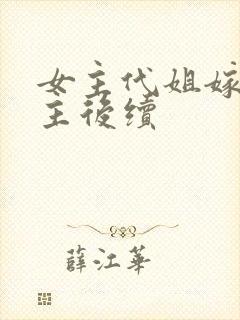 女主代姐嫁
主後續
薛江華